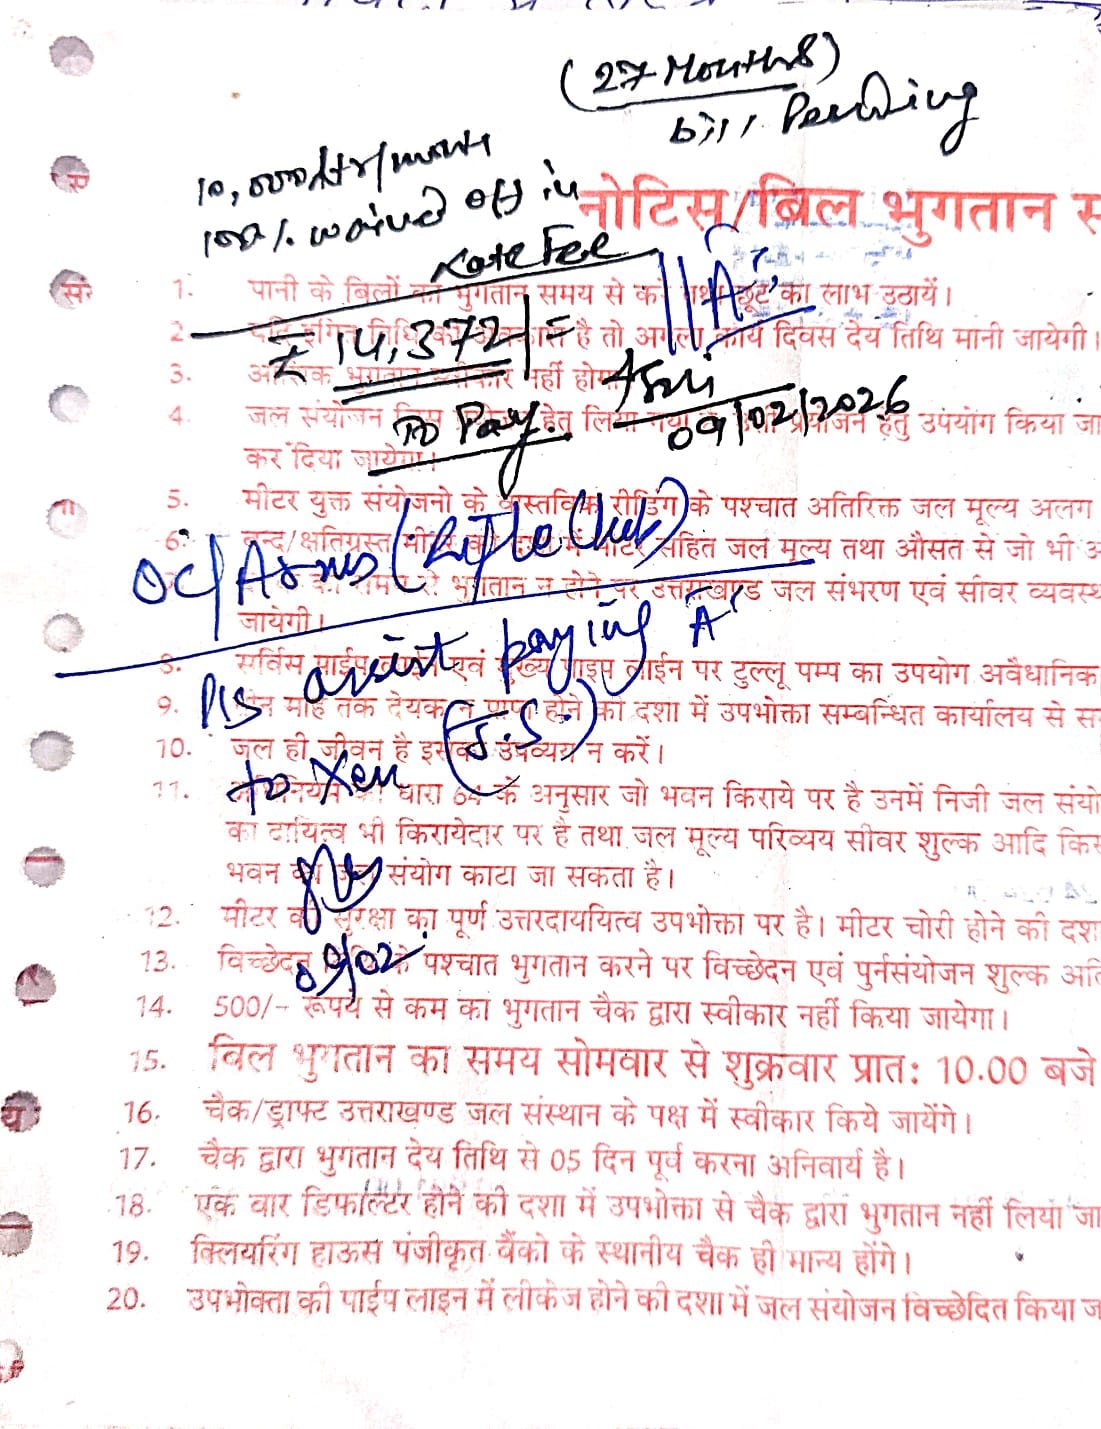 (27 Months)
bill Pending
10,000 Ltr/month
100% waived off in
Late Fee
₹ 14,372/=
To Pay.
"A"
09/02/2026
नोटिस/बिल भुगतान स
1. पानी के बिलों का भुगतान समय से करें तथा छूट का लाभ उठायें।
2. है तो अगला कार्य दिवस देय तिथि मानी जायेगी।
3. आंशिक भुगतान स्वीकार नहीं होगा
4. जल संयोजन जिस हेतु लिया गया प्रयोजन हेतु उपयोग किया जा
कर दिया जायेगा।
5. मीटर युक्त संयोजनो के वास्तविक रीडिंग के पश्चात अतिरिक्त जल मूल्य अलग
OC/Arms (Rifle Club)
6. बन्द/क्षतिग्रस्त सहित जल मूल्य तथा औसत से जो भी अ
भुगतान न होने पर उत्तराखण्ड जल संभरण एवं सीवर व्यवस्थ
जायेगी।
Pls assist paying "A"
8. सर्विस पाईप लाईन एवं मुख्य पाइप लाईन पर टुल्लू पम्प का उपयोग अवैधानिक
9. तीन माह तक देयक न प्राप्त होने की दशा में उपभोक्ता सम्बन्धित कार्यालय से स
(J.S.)
10. जल ही जीवन है इसका उपव्यय न करें।
to Xen
11. धारा 64 के अनुसार जो भवन किराये पर है उनमें निजी जल संयो
का दायित्व भी किरायेदार पर है तथा जल मूल्य परिव्यय सीवर शुल्क आदि किस
भवन का जल संयोग काटा जा सकता है।
12. मीटर की सुरक्षा का पूर्ण उत्तरदाययित्व उपभोक्ता पर है। मीटर चोरी होने की दश
09/02
13. विच्छेदन के पश्चात भुगतान करने पर विच्छेदन एवं पुर्नसंयोजन शुल्क अति
14. 500/- रूपये से कम का भुगतान चैक द्वारा स्वीकार नहीं किया जायेगा।
15. बिल भुगतान का समय सोमवार से शुक्रवार प्रात: 10.00 बजे
16. चैक/ड्राफ्ट उत्तराखण्ड जल संस्थान के पक्ष में स्वीकार किये जायेंगे।
17. चैक द्वारा भुगतान देय तिथि से 05 दिन पूर्व करना अनिवार्य है।
18. एक वार डिफाल्टर होने की दशा में उपभोक्ता से चैक द्वारा भुगतान नहीं लिया जा
19. क्लियरिंग हाऊस पंजीकृत बैंको के स्थानीय चैक ही मान्य होंगे।
20. उपभोक्ता की पाईप लाइन में लीकेज होने की दशा में जल संयोजन विच्छेदित किया ज